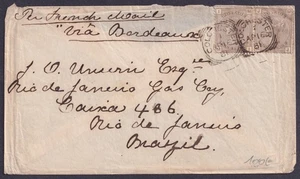 Per French Mail
"Viâ Bordeaux
J. O. Unwin Esqre
Rio de Janeiro Gas Coy
Caixa 486
Rio de Janeiro
Brazil.